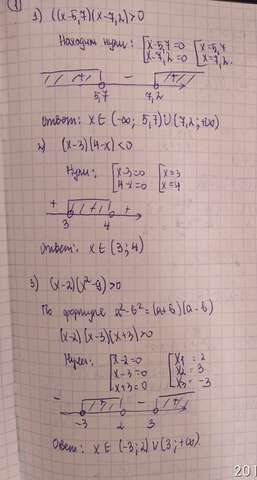 1
1) ((x-5,7)(x-7,2)>0
Находим нули: [x-5,7=0 [x=5,7
x-7,2=0 x=7,2.
+ - +
5,7 7,2
Ответ: x ∈ (-∞; 5,7)∪(7,2;+∞)
2) (x-3)(4-x)<0
Нули: [x-3=0 [x=3
4-x=0 x=4
+ + +
3 4
Ответ: x ∈ (3; 4)
3) (x-2)(x²-9)>0
По формуле a²-b²=(a+b)(a-b)
(x-2)(x-3)(x+3)>0
Нули: [x-2=0 [x₁=2
x-3=0 x₂=3
x+3=0 x₃=-3
- + - +
-3 2 3
Ответ: x ∈ (-3;2)∪(3;+∞)
201